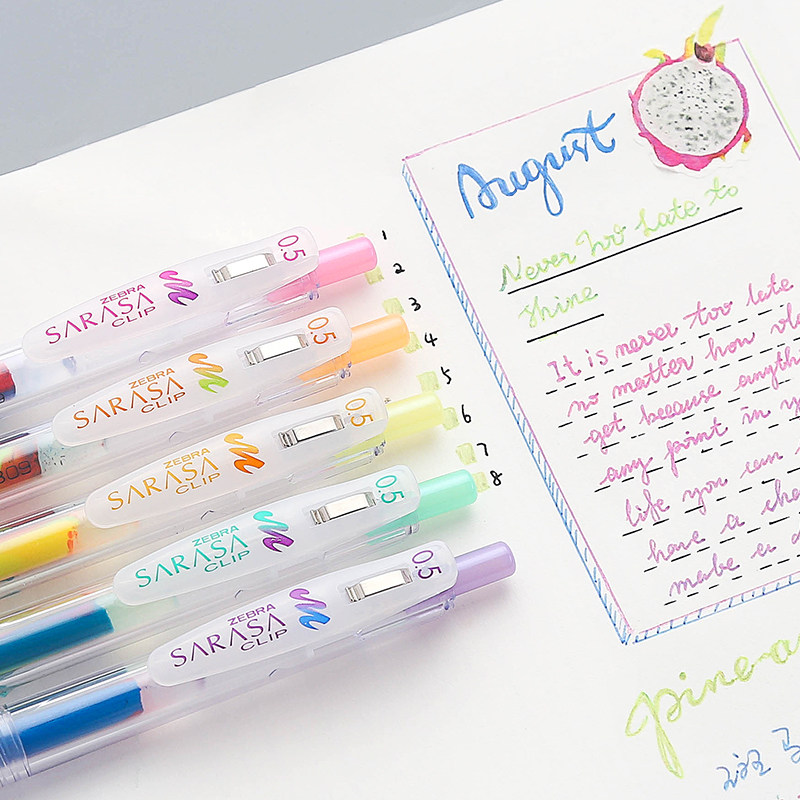 0.5
ZEBRA
SARASA
CLIP
0.5
ZEBRA
SARASA
CLIP
0.5
ZEBRA
SARASA
CLIP
0.5
ZEBRA
SARASA
CLIP
0.5
ZEBRA
SARASA
CLIP
1
2
3
4
5
6
7
8
August
Never too Late to
Shine
It is never too late
no matter how
get because
any point in
life you can
have a
make a